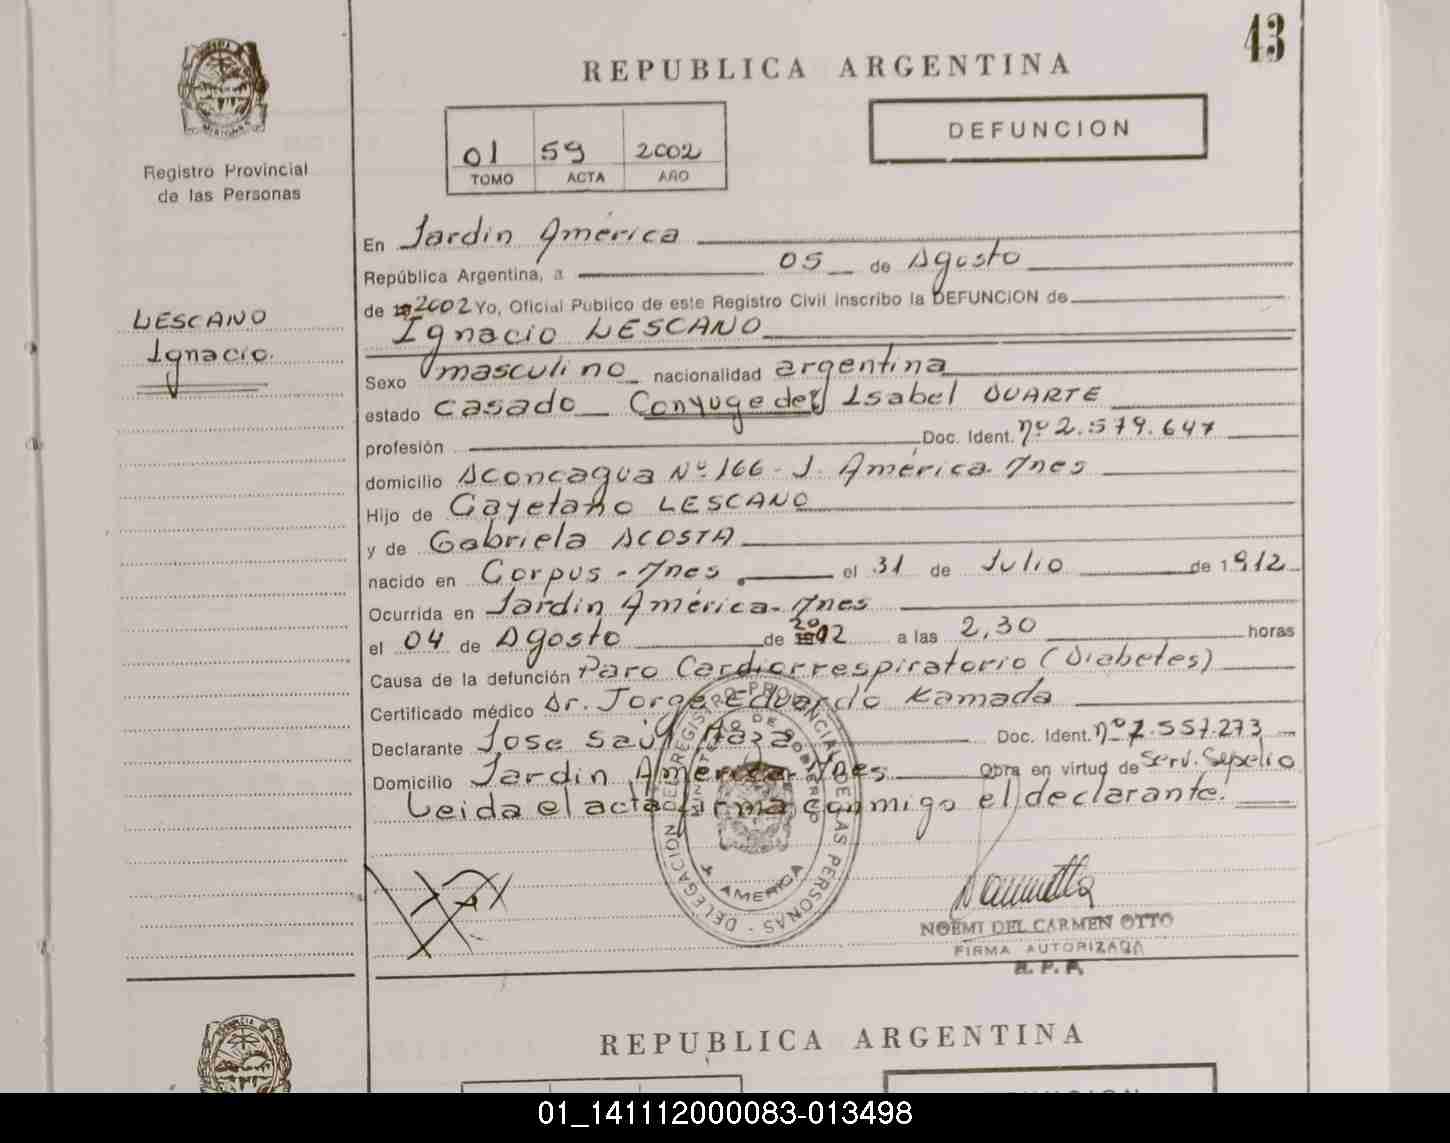 43
REPUBLICA ARGENTINA
01 59 2002
TOMO ACTA AÑO
DEFUNCION
Registro Provincial
de las Personas
LESCANO
Ignacio.
En Jardin América
República Argentina, a 05 de Agosto
de 2002 Yo, Oficial Público de este Registro Civil inscribo la DEFUNCION de
Ignacio LESCANO
Sexo masculino nacionalidad argentina
estado casado Conyuge de: Isabel DUARTE
profesión Doc. Ident. nº 2.579.647
domicilio Aconcagua Nº 166 - J. América. Mnes
Hijo de Cayetano LESCANO
y de Gabriela ACOSTA
nacido en Corpus - Mnes el 31 de Julio de 1912
Ocurrida en Jardin América - Mnes
el 04 de Agosto de 2002 a las 2,30 horas
Causa de la defunción Paro Cardiorrespiratorio (Diabetes)
Certificado médico Dr. Jorge Eduardo Kamada
Declarante Jose Saúl Doc. Ident. nº 7.557.273
Domicilio Jardin America - Mnes Obra en virtud de Serv. Sepelio
Leida el acta firma conmigo el declarante.
DELEGACION DEL REGISTRO PROVINCIAL DE LAS PERSONAS
MINISTERIO DE GOBIERNO
J. AMERICA
NOEMI DEL CARMEN OTTO
FIRMA AUTORIZADA
R. P. P.
REPUBLICA ARGENTINA
01_141112000083-013498